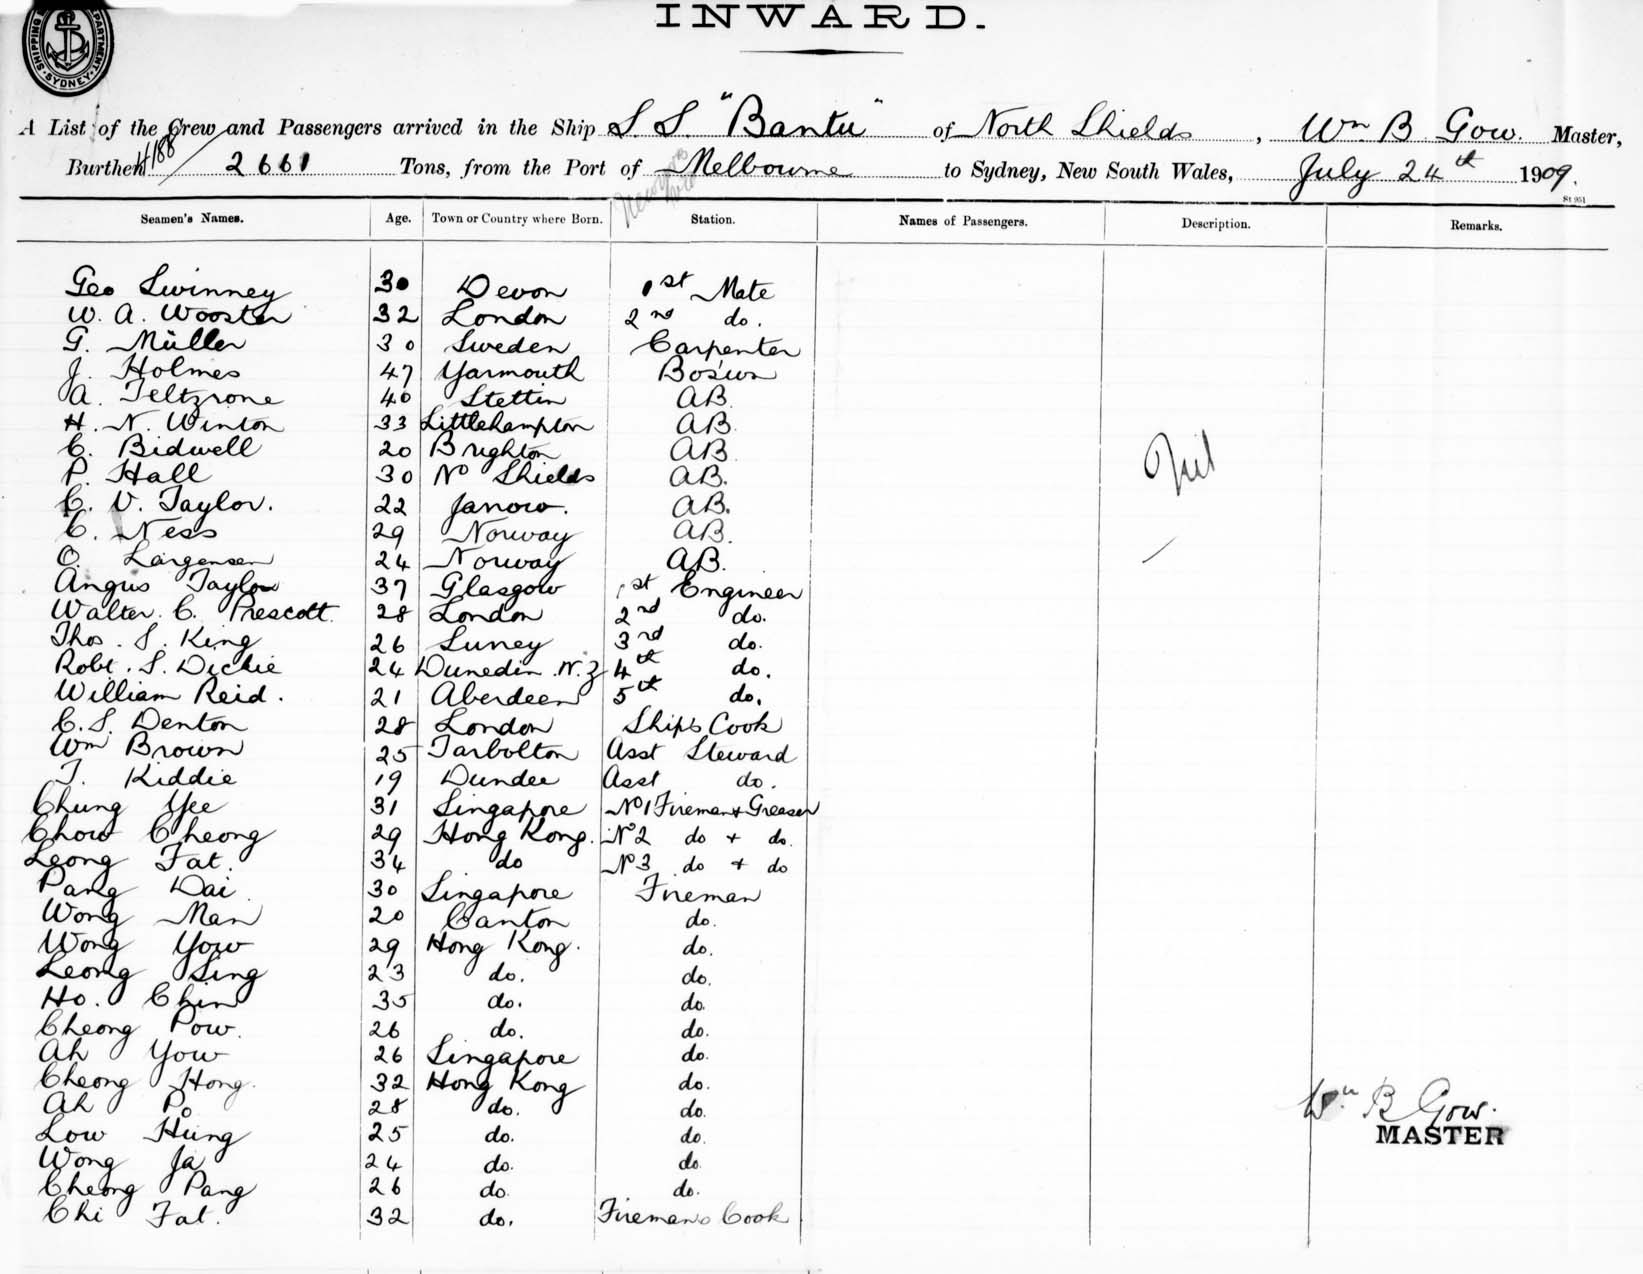 INWARD.
SHIPPING DEPARTMENT SYDNEY
A List of the Crew and Passengers arrived in the Ship S. S. "Bantu" of North Shields, Wm B Gow. Master,
Burthen 4188 / 2661 Tons, from the Port of Melbourne to Sydney, New South Wales, July 24th 1909.
St 951
Seamen's Names. Age. Town or Country where Born. Station. Names of Passengers. Description. Remarks.
Geo Swinney 30 Devon 1st Mate
W. A. Wooster 32 London 2nd do.
G. Müller 30 Sweden Carpenter
J. Holmes 47 Yarmouth Bos'un
A. Teltzrone 40 Stettin AB.
H. N. Winton 33 Littlehampton AB.
C. Bidwell 20 Brighton AB.
P. Hall 30 No Shields AB.
C. V. Taylor. 22 Jarrow. AB.
C. Ness 29 Norway AB.
O. Largensen 24 Norway AB.
Angus Taylor 37 Glasgow 1st Engineer
Walter. C. Prescott. 28 London 2nd do.
Thos. S. King 26 Surrey 3rd do.
Robt. S. Dickie 24 Dunedin. N.Z 4th do.
William Reid. 21 Aberdeen 5th do.
C. S. Denton 28 London Ship's Cook
Wm Brown 25 Tarbolton Asst Steward
T. Kiddie 19 Dundee Asst do.
Chung Yee 31 Singapore No 1 Fireman & Greaser
Chow Cheong 29 Hong Kong. No 2 do + do.
Leong Fat. 34 do No 3 do + do
Pang Dai 30 Singapore Fireman
Wong Man 20 Canton do.
Wong Yow 29 Hong Kong. do.
Leong Sing 23 do. do.
Ho. Chin 35 do. do.
Cheong Pow. 26 do. do.
Ah Yow 26 Singapore do.
Cheong Hong. 32 Hong Kong do.
Ah Po 28 do. do.
Low Hung 25 do. do.
Wong Ja 24 do. do.
Cheong Pang 26 do. do.
Chi Fat. 32 do. Firemans Cook
Nil
Wm B Gow.
MASTER